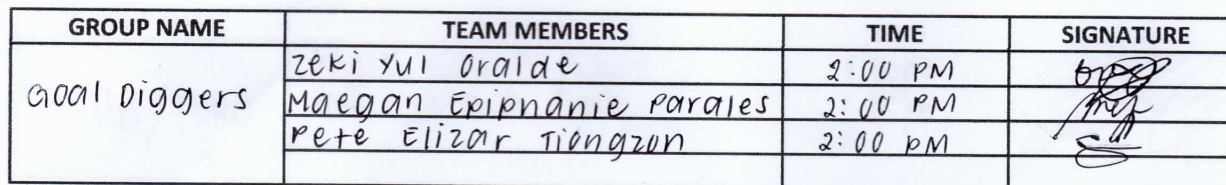 GROUP NAME TEAM MEMBERS TIME SIGNATURE
Goal Diggers
Zeki Yul Oralde 2:00 PM
Maegan Epiphanie Parales 2:00 PM
Pete Elizar Tiongzon 2:00 PM